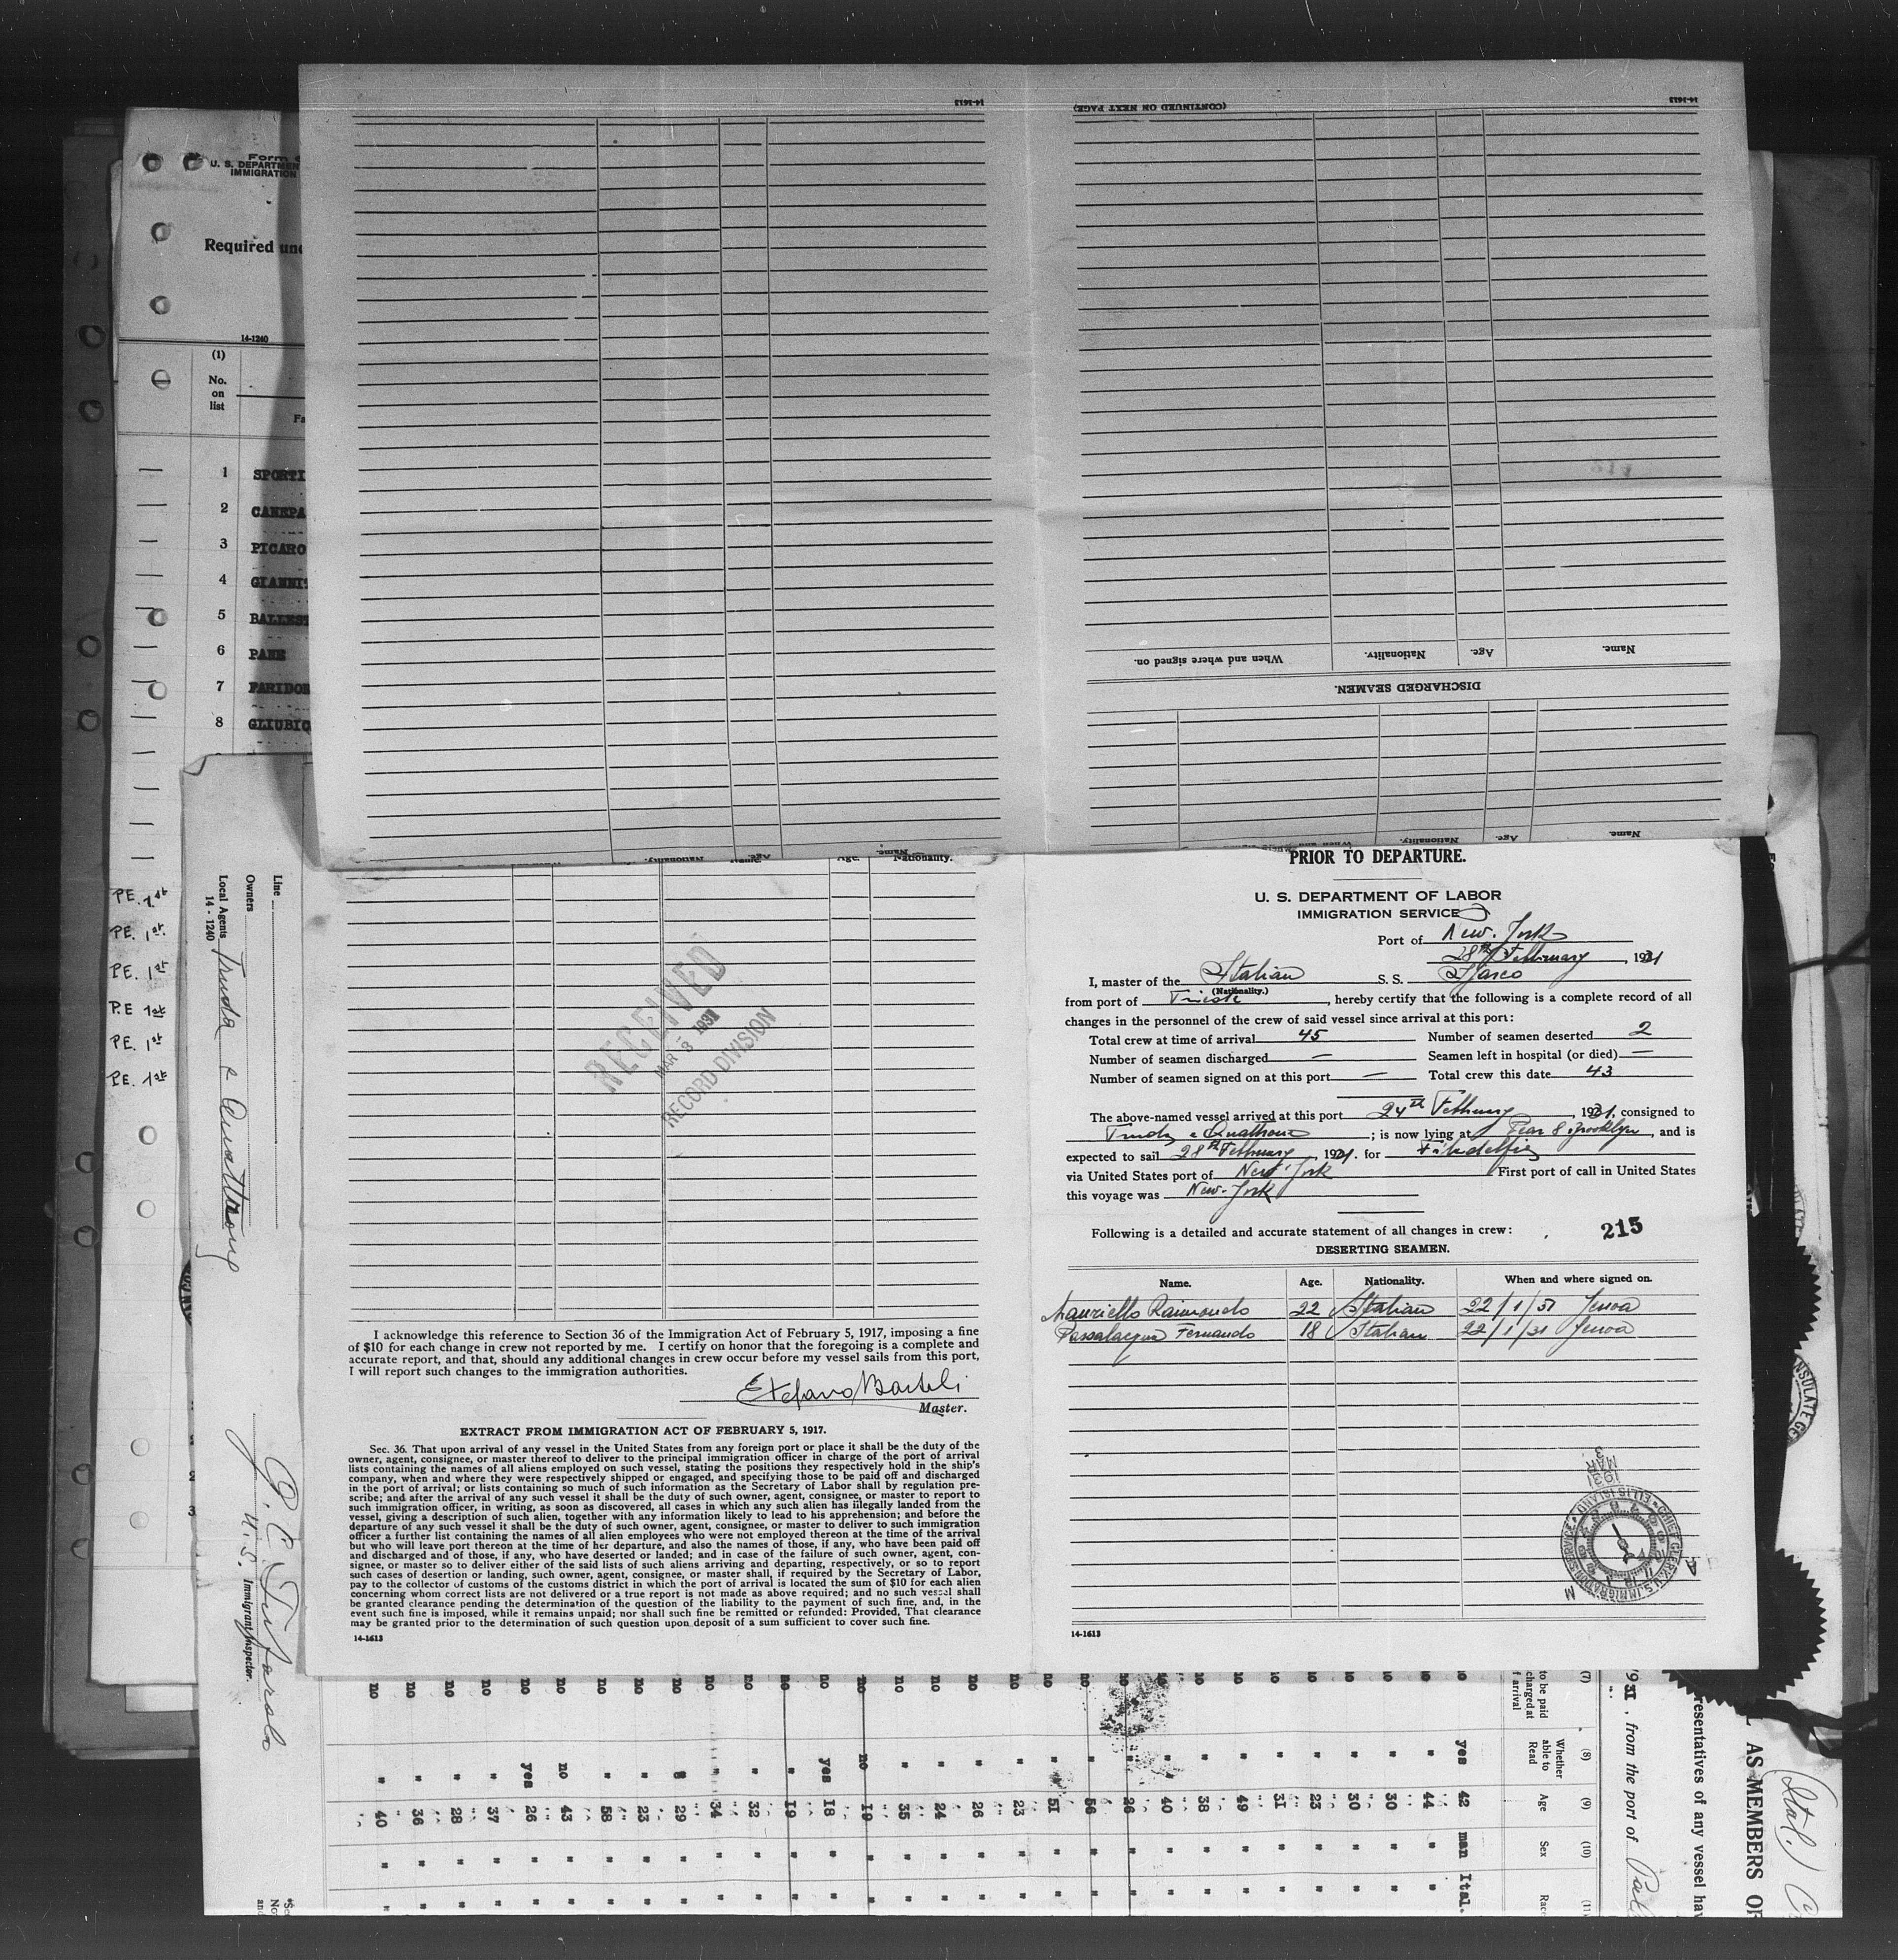 14-1613
(CONTINUED ON NEXT PAGE)
14-1613
Name.
Age.
Nationality.
When and where signed on.
DISCHARGED SEAMEN.
Name.
Age.
Nationality.
Name.
Age.
Nationality.
Form
U. S. DEPARTMEN
IMMIGRATION
Required und
14-1240
(1)
No.
on
list
Fa
1 SPORTI
2 CANEPA
3 PICARO
4 GIANNI
5 BALLES
6 PANE
7 FARIDO
8 GLIUBI
PE. 1st
PE. 1st
PE. 1st
P.E 1st
PE. 1st
P.E. 1st
Line
Owners
Local Agents Truda e Quattrone
14-1240
U. S. Immigrant Inspector.
Age. Nationality.
RECEIVED
MAR 3 1931
RECORD DIVISION
I acknowledge this reference to Section 36 of the Immigration Act of February 5, 1917, imposing a fine
of $10 for each change in crew not reported by me. I certify on honor that the foregoing is a complete and
accurate report, and that, should any additional changes in crew occur before my vessel sails from this port,
I will report such changes to the immigration authorities.
Master.
EXTRACT FROM IMMIGRATION ACT OF FEBRUARY 5, 1917.
Sec. 36. That upon arrival of any vessel in the United States from any foreign port or place it shall be the duty of the
owner, agent, consignee, or master thereof to deliver to the principal immigration officer in charge of the port of arrival
lists containing the names of all aliens employed on such vessel, stating the positions they respectively hold in the ship's
company, when and where they were respectively shipped or engaged, and specifying those to be paid off and discharged
in the port of arrival; or lists containing so much of such information as the Secretary of Labor shall by regulation pre-
scribe; and after the arrival of any such vessel it shall be the duty of such owner, agent, consignee, or master to report to
such immigration officer, in writing, as soon as discovered, all cases in which any such alien has illegally landed from the
vessel, giving a description of such alien, together with any information likely to lead to his apprehension; and before the
departure of any such vessel it shall be the duty of such owner, agent, consignee, or master to deliver to such immigration
officer a further list containing the names of all alien employees who were not employed thereon at the time of the arrival
but who will leave port thereon at the time of her departure, and also the names of those, if any, who have been paid off
and discharged and of those, if any, who have deserted or landed; and in case of the failure of such owner, agent, con-
signee, or master so to deliver either of the said lists of such aliens arriving and departing, respectively, or so to report
such cases of desertion or landing, such owner, agent, consignee, or master shall, if required by the Secretary of Labor,
pay to the collector of customs of the customs district in which the port of arrival is located the sum of $10 for each alien
concerning whom correct lists are not delivered or a true report is not made as above required; and no such vessel shall
be granted clearance pending the determination of the question of the liability to the payment of such fine, and, in the
event such fine is imposed, while it remains unpaid; nor shall such fine be remitted or refunded: Provided, That clearance
may be granted prior to the determination of such question upon deposit of a sum sufficient to cover such fine.
14-1613
PRIOR TO DEPARTURE.
U. S. DEPARTMENT OF LABOR
IMMIGRATION SERVICE
Port of New-York
28th February, 1931
I, master of the Italian S. S.
(Nationality.)
from port of Trieste, hereby certify that the following is a complete record of all
changes in the personnel of the crew of said vessel since arrival at this port:
Total crew at time of arrival 45 Number of seamen deserted 2
Number of seamen discharged — Seamen left in hospital (or died) —
Number of seamen signed on at this port — Total crew this date 43
The above-named vessel arrived at this port 24th February, 1931, consigned to
Truda e Quattrone; is now lying at Pear 8 Brooklyn, and is
expected to sail 28th February, 1931. for Filadelfia
via United States port of New York First port of call in United States
this voyage was New-York
Following is a detailed and accurate statement of all changes in crew:
215
DESERTING SEAMEN.
Name. Age. Nationality. When and where signed on.
Mauriello Raimondo 22 Italian 22/1/31 Jenoa
Passalacqua Fernando 18 Italian 22/1/31 Jenoa
MAR 3
1931
CHIEF CLERK U. S. IMMIGRATION SERVICE ELLIS ISLAND
14-1613
(7) to be paid charged at f arrival
no no no no no no no no no no no
(8) Whether able to Read
yes " " " " " " " " " " " " " " " no yes " " " " " " no yes " " " "
(9) Age
42 44 30 30 23 31 49 38 40 26 56 51 23 26 24 35 19 18 19 32 34 29 23 58 43 26 37 28 36 40
(10) Sex
man
(11) Race
Ital.
1931, from the port of
resentatives of any vessel hav
AS MEMBERS OF
(Ital.)
NSULATE GE